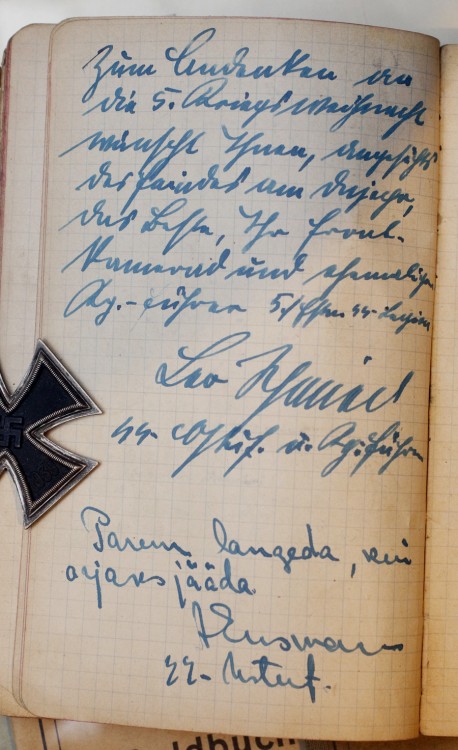 Zum Andenken an
die 5. Kriegsweihnacht
wünscht Ihnen, angesichts
des Feindes am Dnjepr,
das Beste, Ihr Front-
kamerad und ehemaliger
Kp.-Führer 5./Estn. SS-Legion
Leo
SS-Ostuf. u. Kp.führer
Parem langeda, kui
orjaks jääda.
SS-Ustuf.